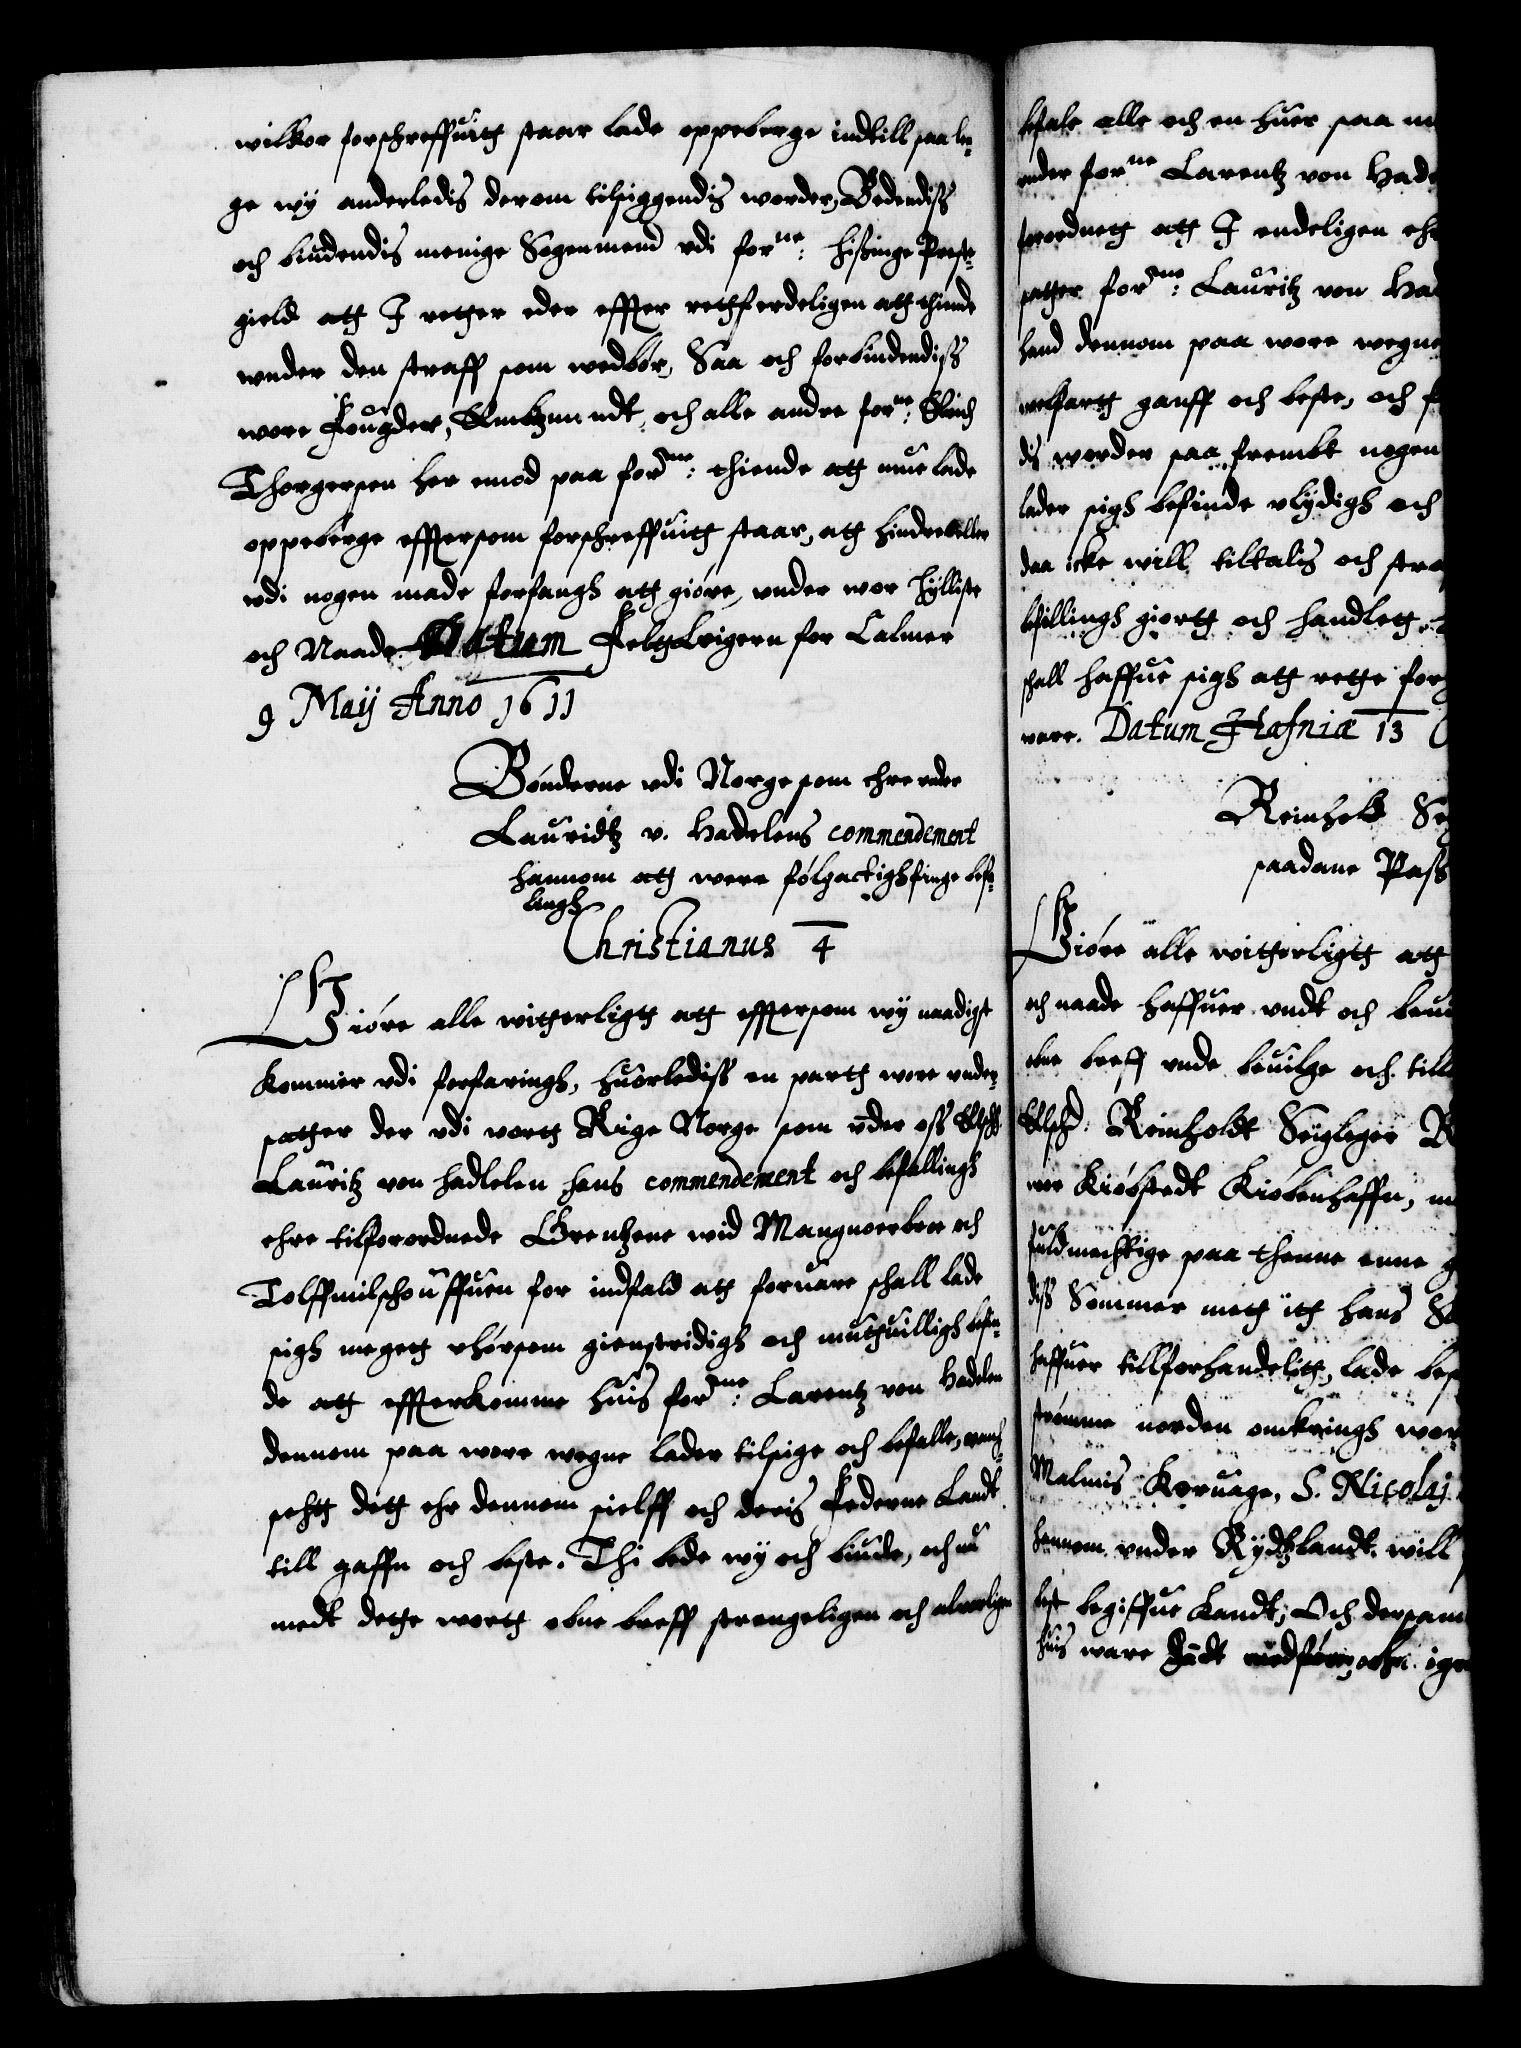 wilkor forschreffuitt staar lade oppeberge indtill saa len¬
ge wy anderledis derom tilsiggendis worder, Bedendiss
och biudendis menige Sogenmend vdi forne: Hisinge Preste¬
gield att I retter eder effter rettferdeligen att thiende
wnder den straff som wedbør, Saa och forbiudendiss
wore Fougder, Embtzmendt, och alle andre forne:
Thorgersen her emod paa forne: thiende att mue lade
oppeberge effttersom forschreffuitt staar, att hindre eller
vdi nogen made forfangh att giøre, vnder wor hylliste
och Naade Datum Feltleigern for Calmer
9 Maij Anno 1611
Bønderne vdi Norge som ehre vnder
Lauridtz v. Hadelens commendement
hannom att were følgactigh finge befa¬
lingh
Christianus 4
Giøre alle witterligtt att effttersom wy naadigst
kommer vdi forfaringh, huorlediss en partt wore vnder¬
satter der vdi wortt Rige Norge som vnder oss Elsch
Lauritz von Hadelen hans commendement och befallingh
ehre tilforordnede Grentzene wid Mangnoerbroe och
Tolffmilschouffuen for indfald att foruare schall lade
sigh megett vhørsom gienstridigh och muthuilligh befin¬
de att effterkomme huis forne: Larentz von Hadelen
dennom paa wore wegne lader tilsige och befalle, wanseh¬
sehtt dett ehr dennom sielff och deris Federne Landt
till gaffn och beste. Thi bede wy och biude, och nu
medt dette wortt obne breff strengeligen och aluorligen
befale alle och en huer saa
vnder forne Larentz von Hade
forordnett att I endeligen
satter forne: Lauritz von Had
hand dennom paa wore wegne
welfartt gauff och beste, och
dis worder saa frembt nogen
lader sigh befinde vlydigh och
daa icke will tiltalis och stra
befillingh giortt och handlett
schall haffue sigh att rette for
vare. Datum Hafniæ 13
Reinholt Se
saadane Pass
Giøre alle witterligtt att
och naade haffuer vndt och beui
obne breff vnde beuilge och till
Elsch: Reinholdt Seigleger
wor Kiøbstedt Kiøbenhaffn,
fuldmechtige paa thenne enne
diss Sommer mett itt hans
haffuer tillforhandelitt, lade
strømme norden omkringh wor
Malmis Koruage, S. Nicolaj
hannom vnder Rydtzlandt will
best begiffue kandt; Och dersam
huis ware hand medfører och igen